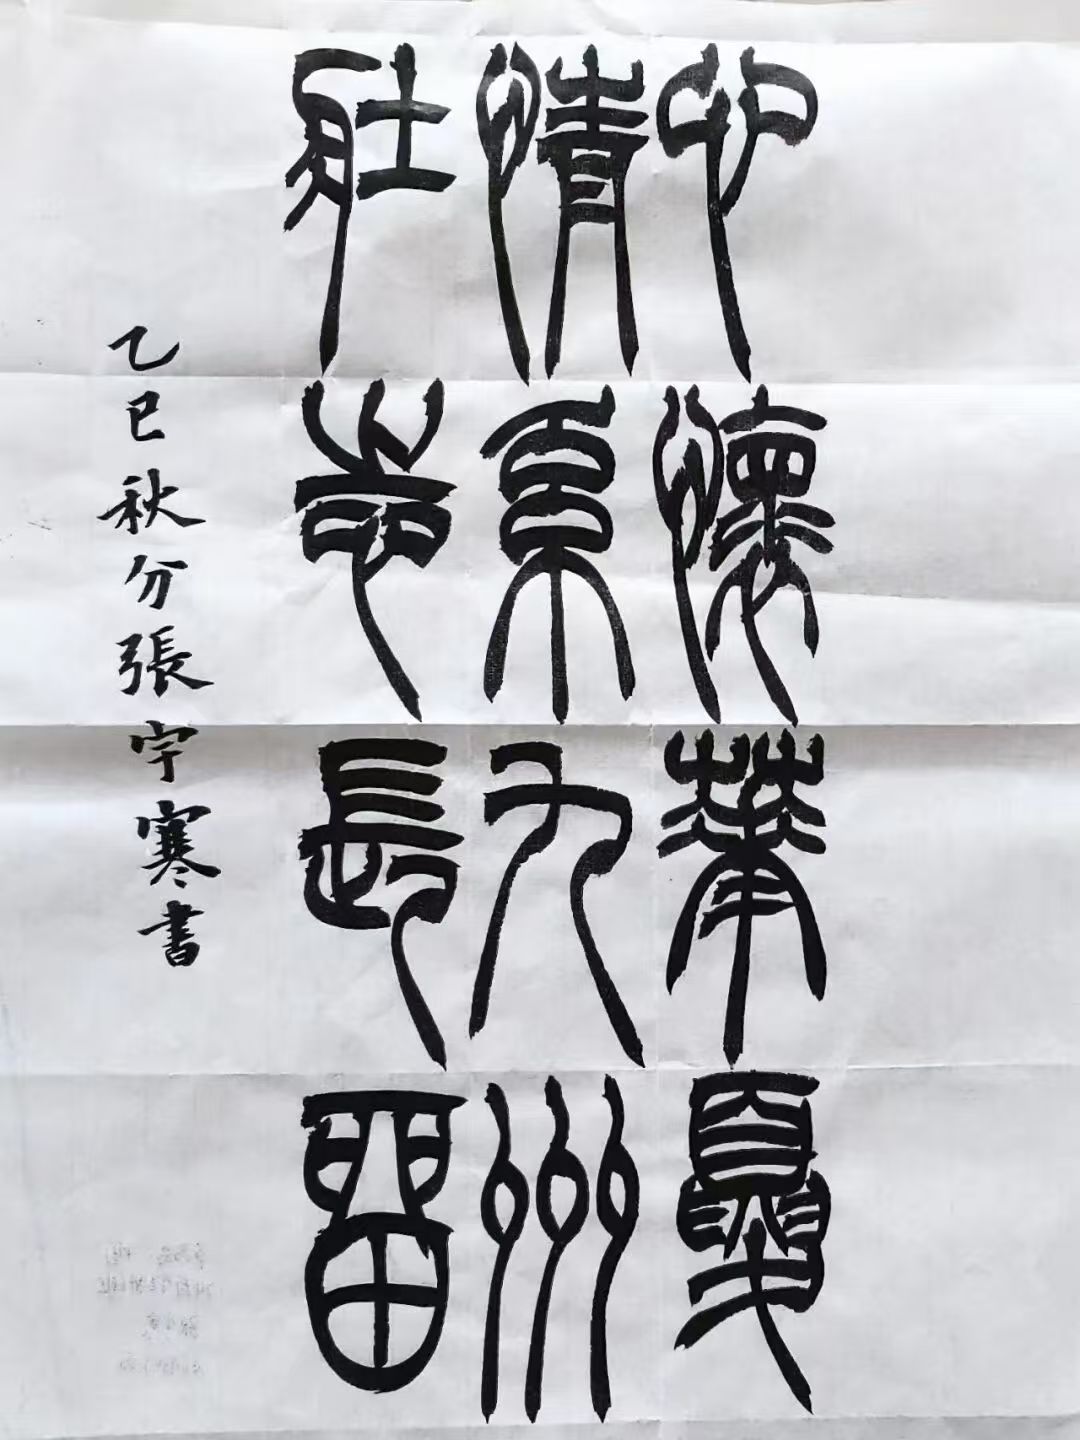 心懷華夏
情系九州
壯志長留
乙巳秋分張宇寒書